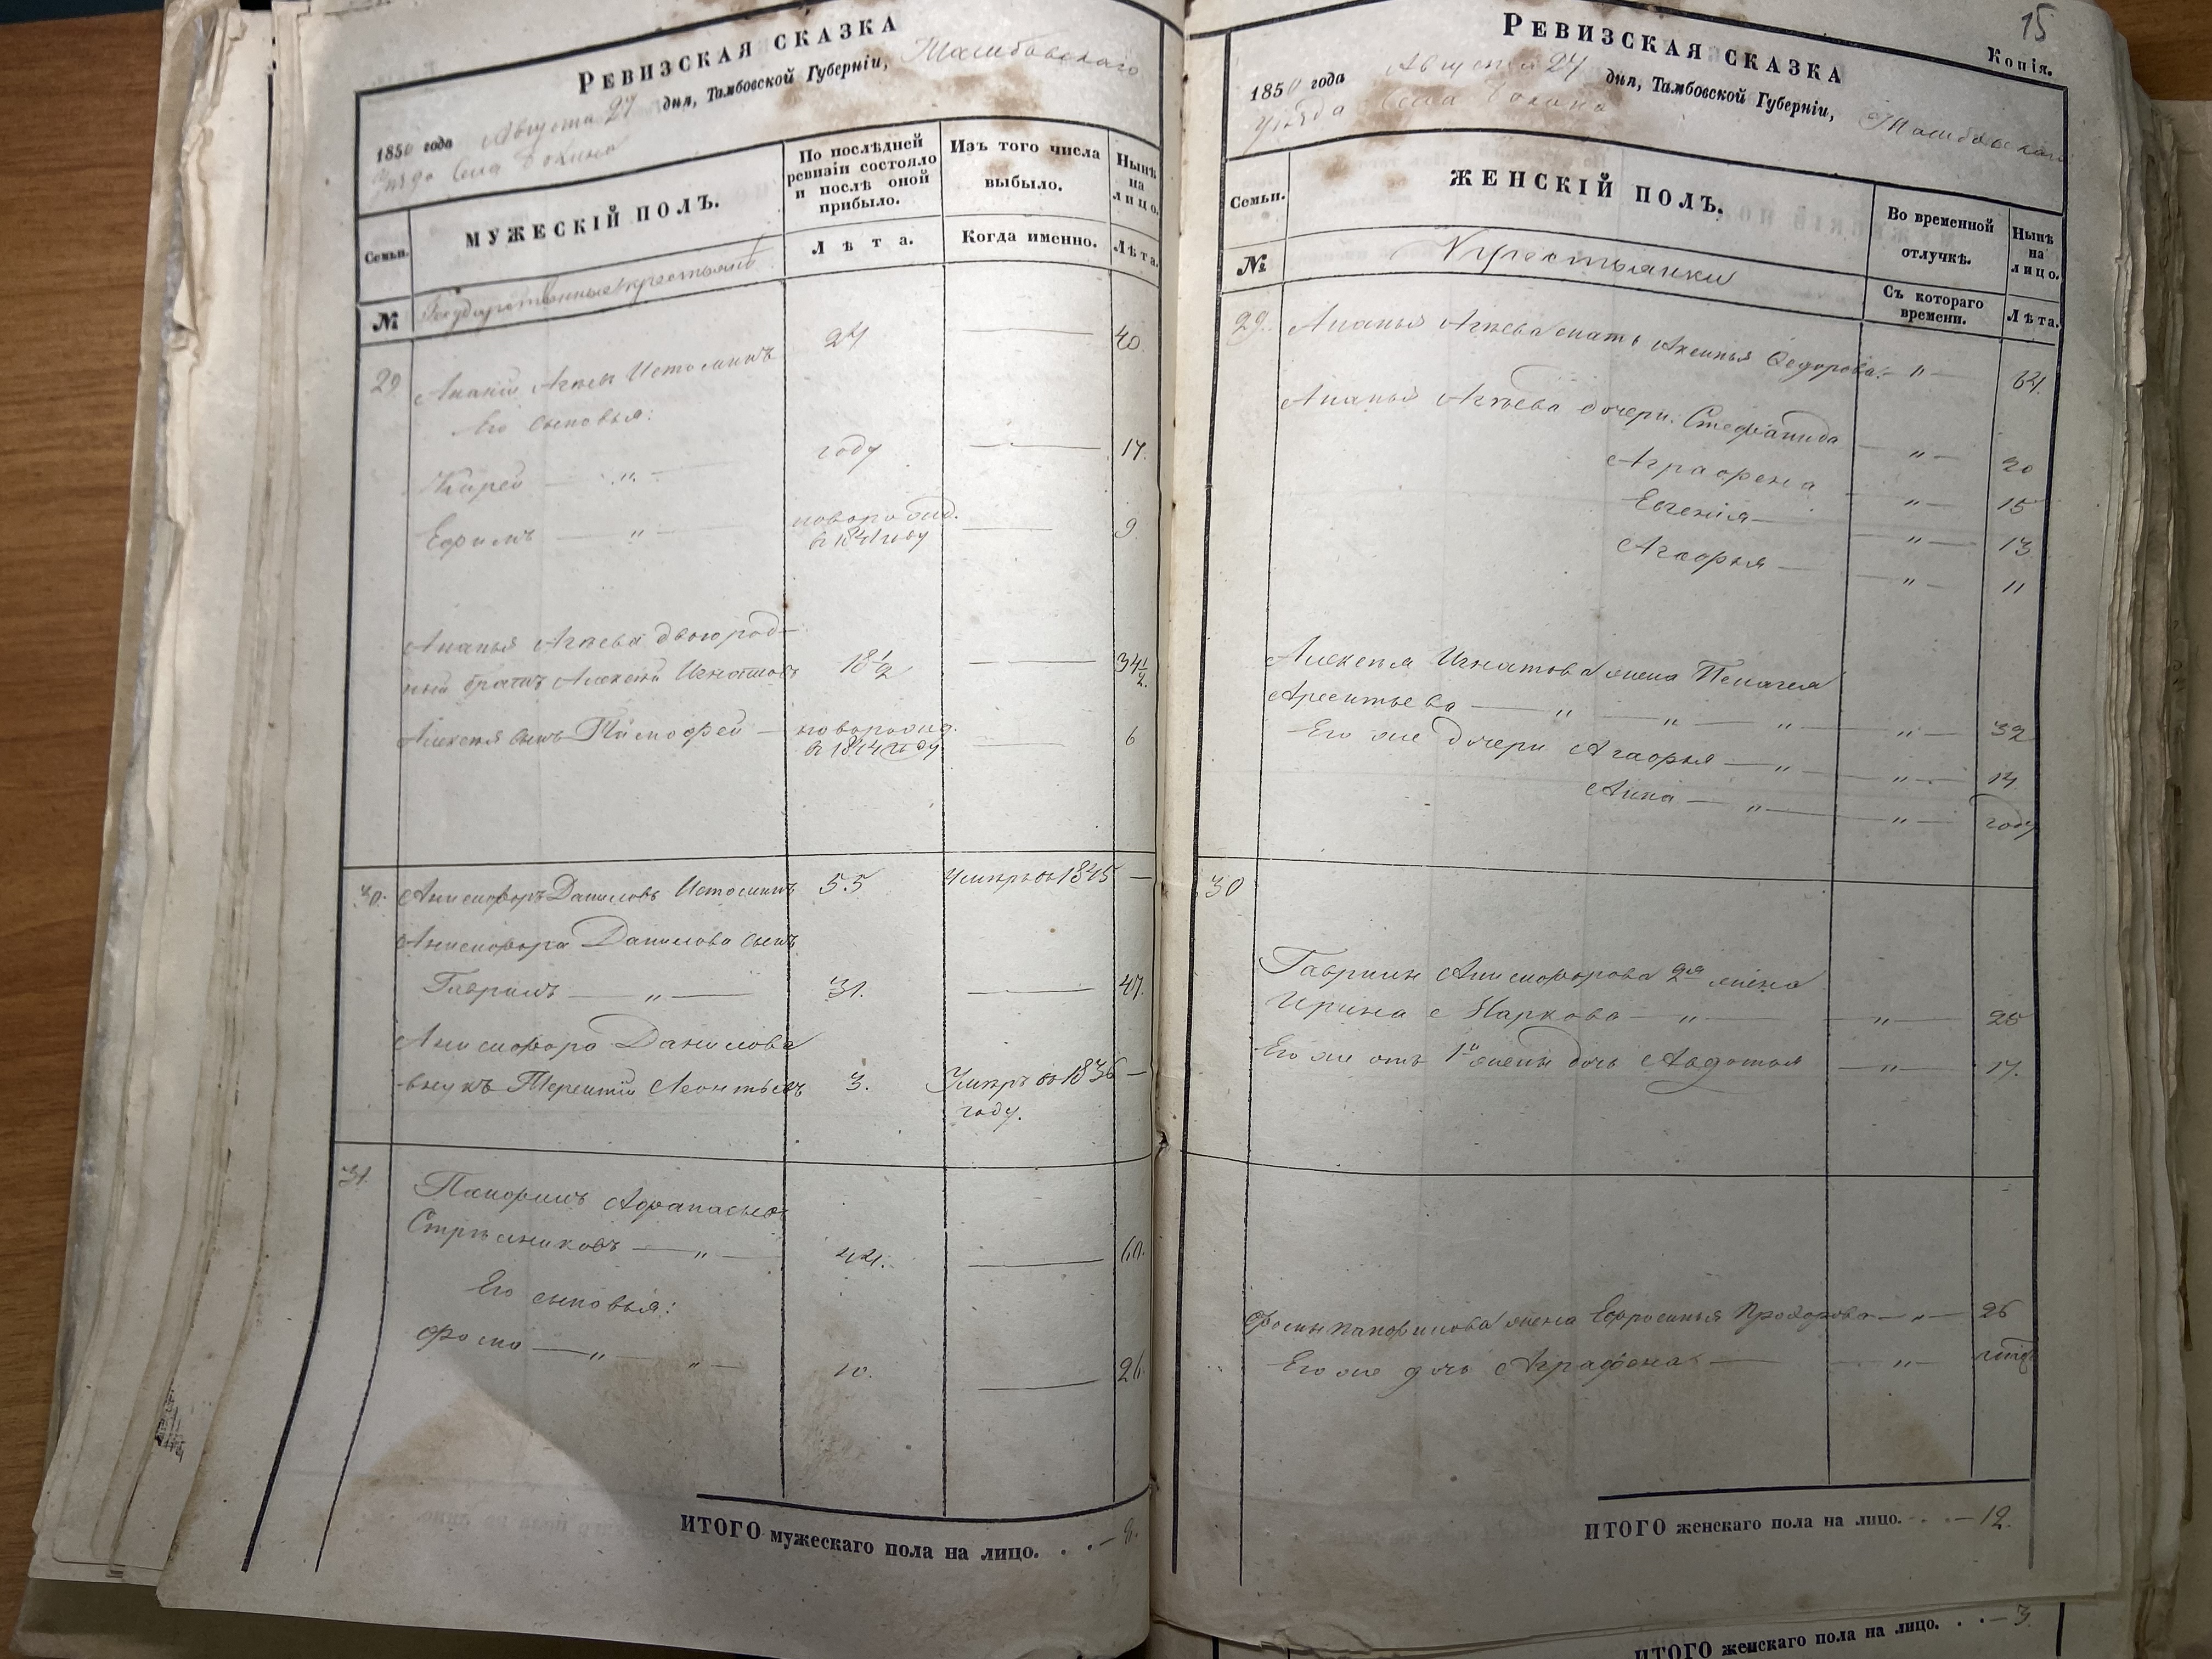 РЕВИЗСКАЯ СКАЗКА
1850 года Августа 27 дня, Тамбовской Губерніи, Тамбовскаго
уѣзда Села Бокина
Семьи.
МУЖЕСКІЙ ПОЛЪ.
По послѣдней ревизіи состояло и послѣ оной прибыло.
Изъ того числа выбыло.
Нынѣ на лицо.
№
Государственные крестьяне
Лѣта.
Когда именно.
Лѣта.
29. Ананій Агѣевъ Истоминъ 24 — 40.
Его сыновья:
году — 17.
Ефимъ — „ — новорожд. в 1841 году — 9.
Ананья Агѣева двоюрод-
ный братъ Алексѣй Игнатовъ 18 1/2 — 34 1/2.
Алексѣя сынъ Тимофей — новорожд. в 1844 году — 6
30. Анисифоръ Даниловъ Истоминъ 55 Умеръ въ 1845 —
Анисифора Данилова сынъ
Гаврилъ — „ — 31. — 47.
Анисифора Данилова
внукъ Терентій Леонтьевъ 3. Умеръ въ 1836 —
году.
31. Панфилъ Афанасьевъ
Стрѣльниковъ — „ — 44. — 60.
Его сыновья:
Фома — „ — „ — 10. — 26.
ИТОГО мужескаго пола на лицо. . . — 8.
15
Копія.
РЕВИЗСКАЯ СКАЗКА
1850 года Августа 27 дня, Тамбовской Губерніи, Тамбовскаго
уѣзда Села Бокина
Семьи.
ЖЕНСКІЙ ПОЛЪ.
Во временной отлучкѣ.
Нынѣ на лицо.
№
Крестьянки
Съ котораго времени.
Лѣта.
29. Ананья Агѣева мать Аксинья Федорова — „ — 64.
Ананья Агѣева дочери: Стефанида — „ — 20
Аграфена — „ — 15
Евгенія — „ — 13
Агафья — „ — 11
Алексѣя Игнатова жена Пелагея
Арентьева — „ — „ — „ — „ — 32
Его же дочери Агафья — „ — „ — 14
Анна — „ — „ — году
30
Гаврилы Анисифорова 2я жена
Ирина Маркова — „ — „ — 28
Его же отъ 1й жены дочь Авдотья — „ — 17.
Фомы Панфилова жена Ефросинья Прохорова — „ — 26
Его же дочь Аграфена — „ —
ИТОГО женскаго пола на лицо. . . — 12.
ИТОГО женскаго пола на лицо. . . — 3.